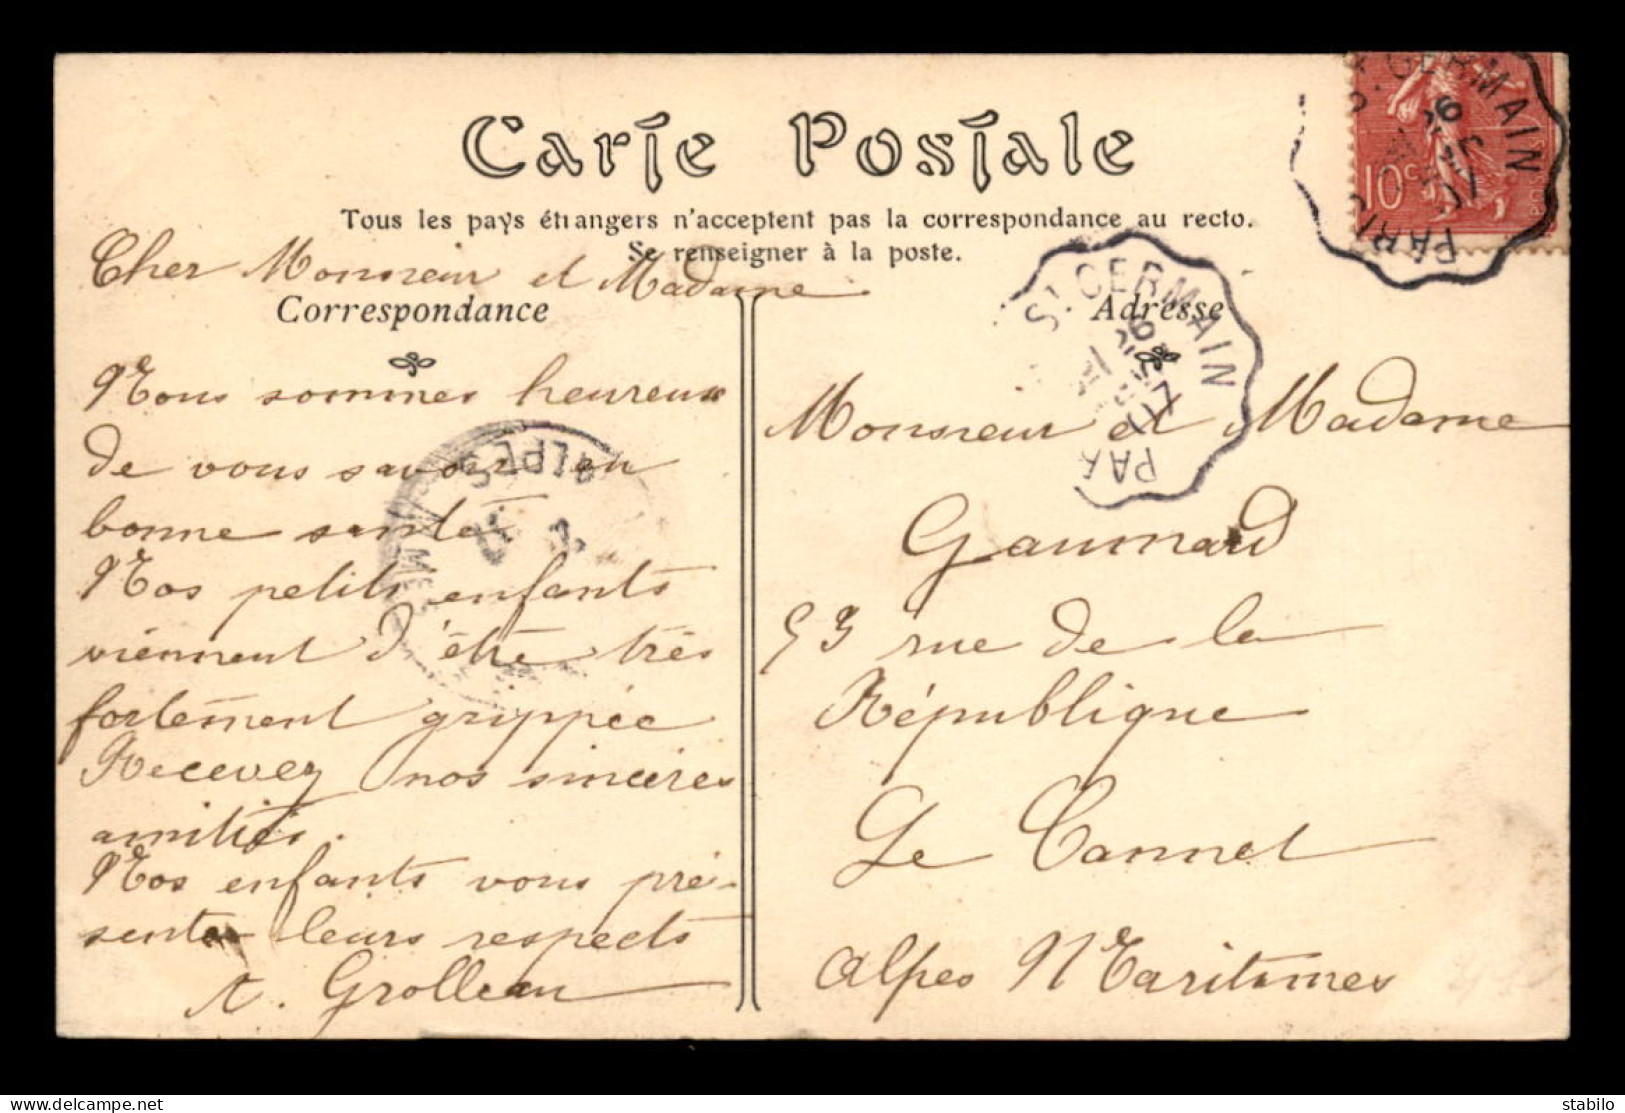 Carte Postale
Tous les pays étrangers n'acceptent pas la correspondance au recto.
Se renseigner à la poste.
Correspondance
Cher Monsieur et Madame
Nous sommes heureux
de vous savoir en
bonne santé
Nos petits enfants
viennent d'être très
fortement grippée
Recevez nos sincères
amitiés.
Nos enfants vous pré-
sente leurs respects
A. Grolleau
Adresse
Monsieur et Madame
Gaumard
53 rue de la
République
Le Cannet
Alpes Maritimes
10c
PARIS
ST GERMAIN
ST GERMAIN
PAR
ALPES
stabilo